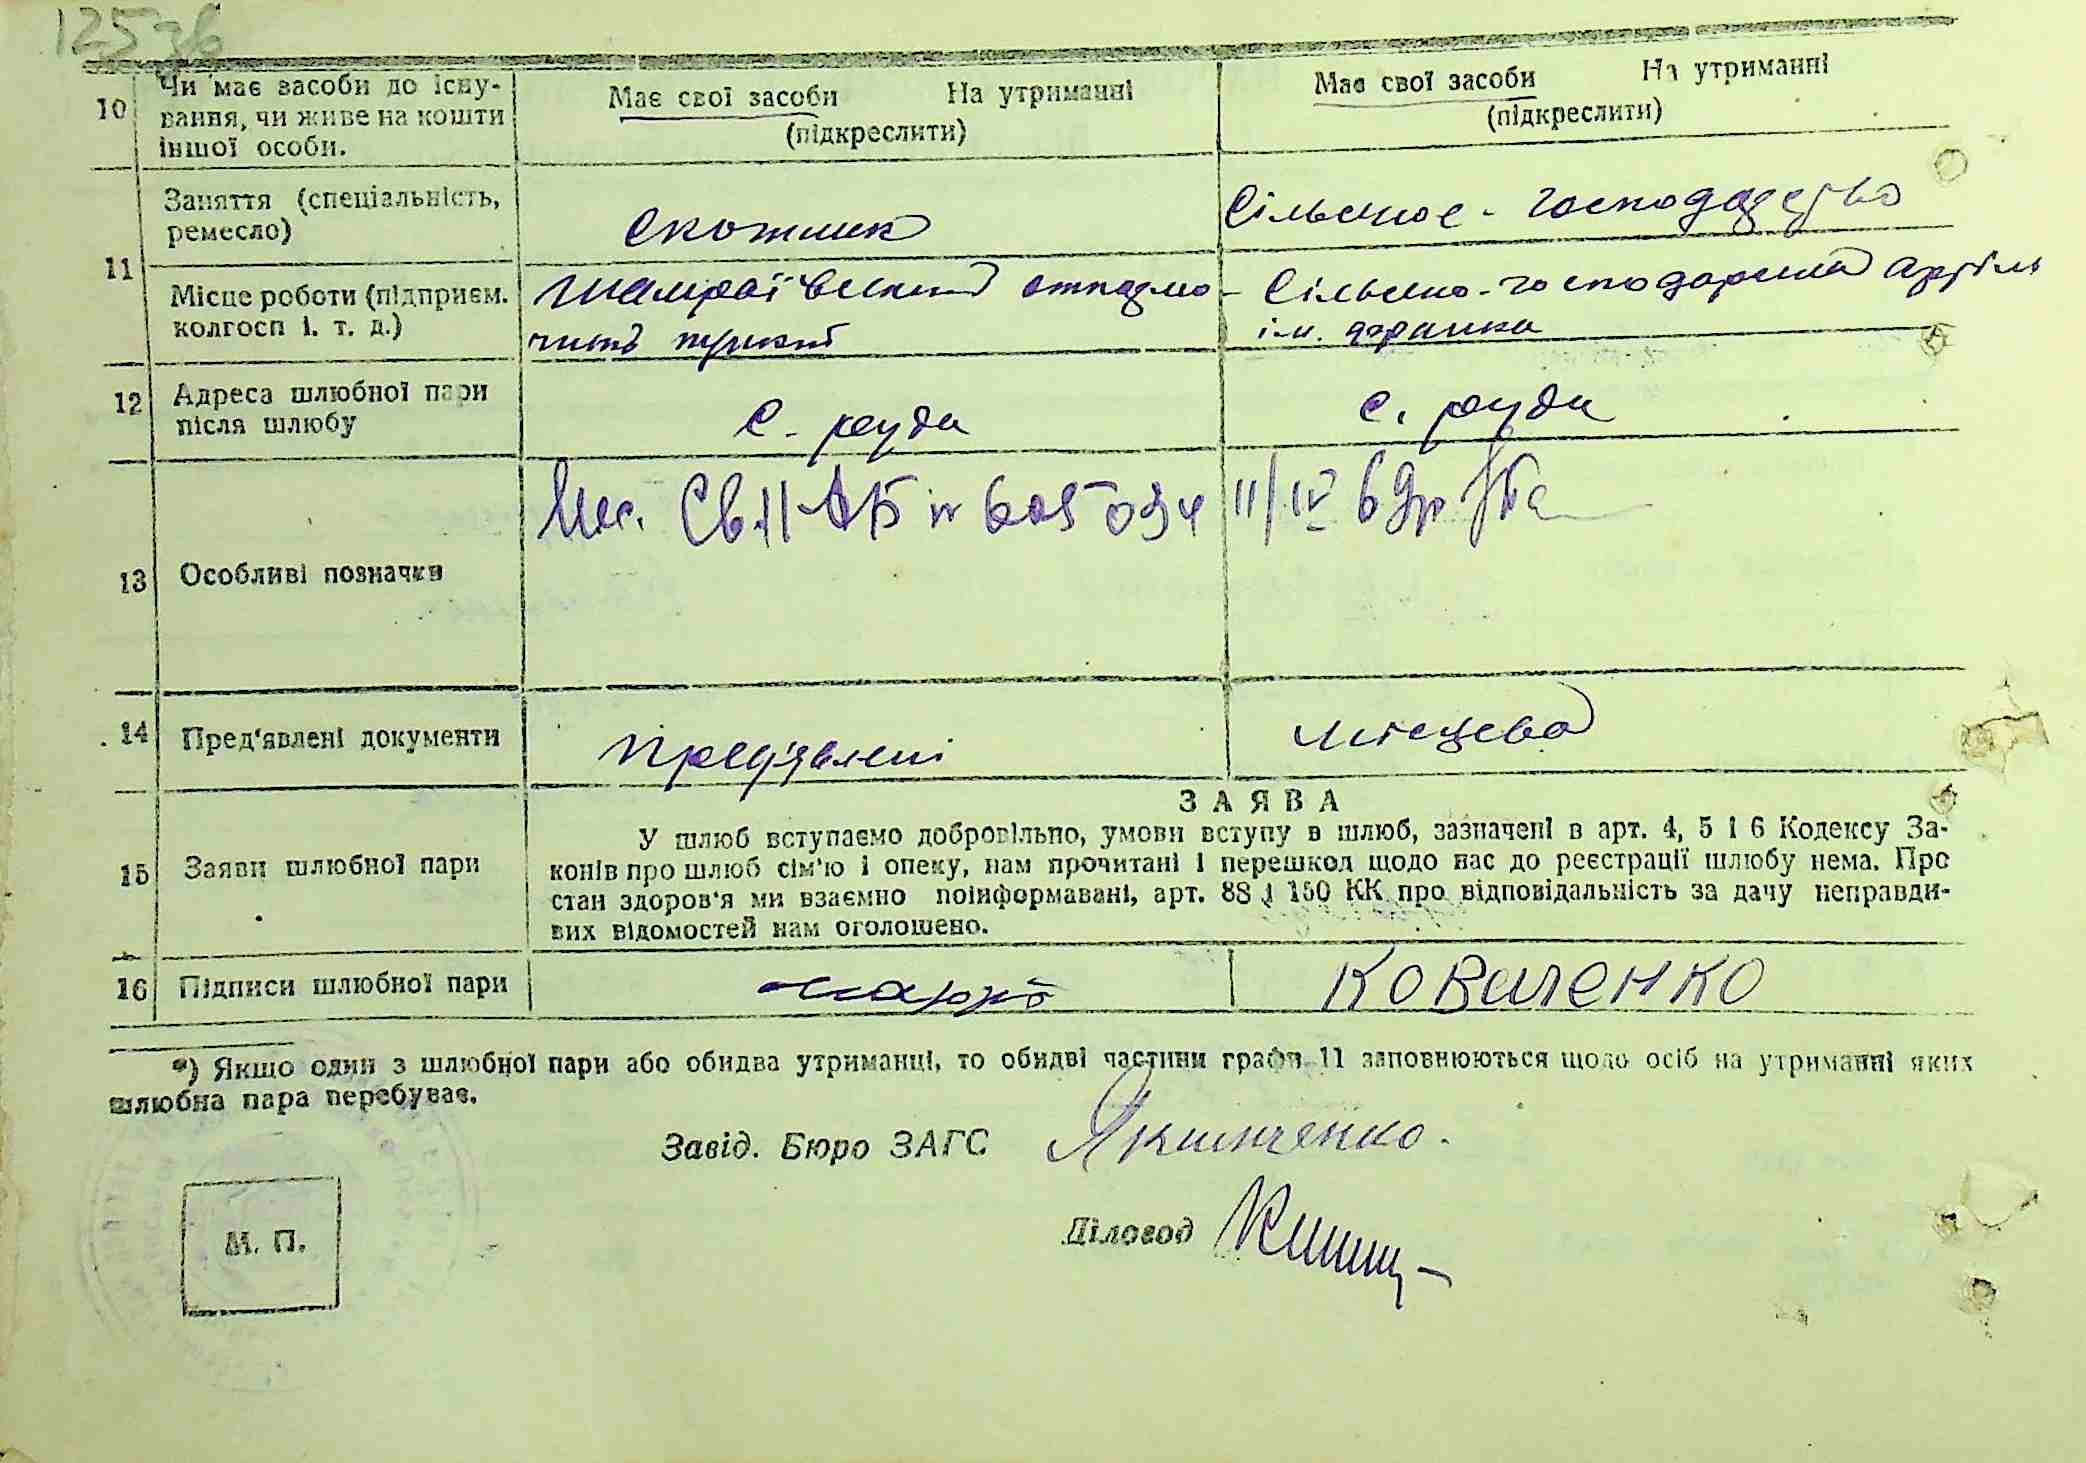 125зв
10 Чи має засоби до існу-
вання, чи живе на кошти
іншої особи.
Має свої засоби На утриманні
(підкреслити)
Має свої засоби На утриманні
(підкреслити)
11
Заняття (спеціальність,
ремесло)
Скотник
Сільське - господарство
Місце роботи (підприєм.
колгосп і. т. д.)
Шамраївський
пункт
Сільсько-господарська артіль
ім.
12 Адреса шлюбної пари
після шлюбу
с. Руда
с. Руда
13 Особливі позначки
Св. II АБ № 605094 11/IV 69р
14 Пред'явлені документи
Пред'явлені
місцева
15 Заяви шлюбної пари
ЗАЯВА
У шлюб вступаємо добровільно, умови вступу в шлюб, зазначені в арт. 4, 5 і 6 Кодексу За-
конів про шлюб сім'ю і опеку, нам прочитані і перешкод щодо нас до реєстрації шлюбу нема. Про
стан здоров'я ми взаємно поінформавані, арт. 88 і 150 КК про відповідальність за дачу неправди-
вих відомостей нам оголошено.
16 Підписи шлюбної пари
Коваленко
*) Якщо один з шлюбної пари або обидва утриманці, то обидві частини графи 11 заповнюються щодо осіб на утриманні яких
шлюбна пара перебуває.
Завід. Бюро ЗАГС Якимченко.
Діловод
М. П.